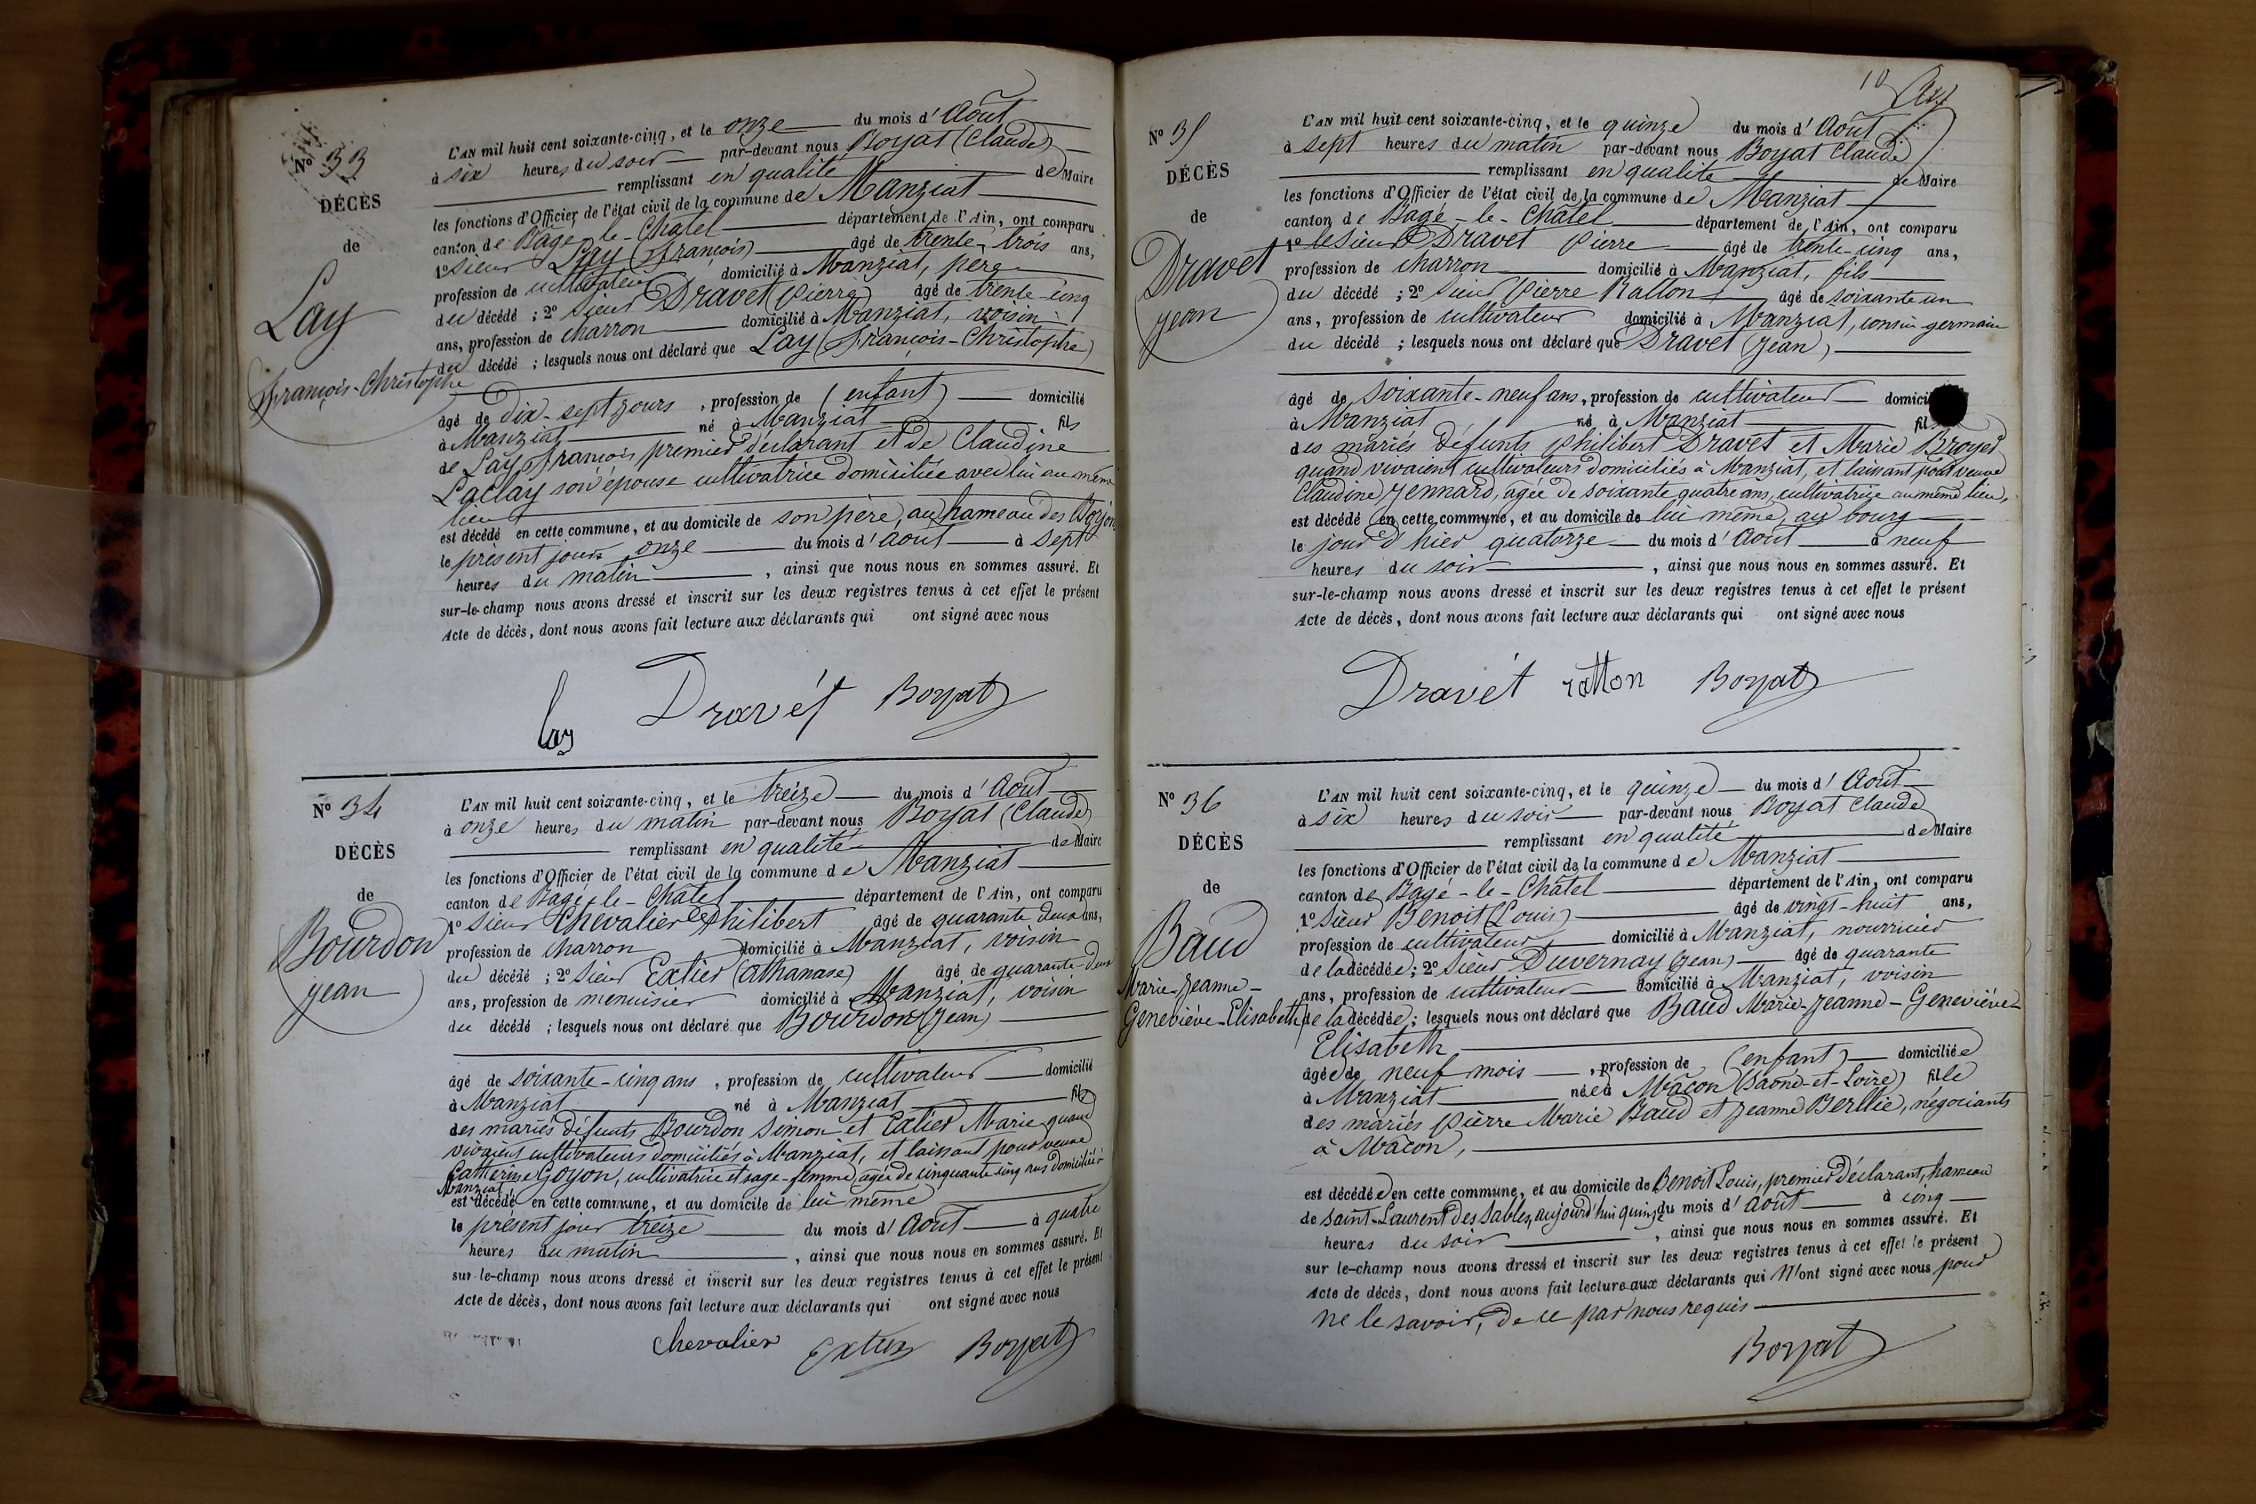 N° 33
DÉCÈS
de
Lay
François-Christophe
L'AN mil huit cent soixante-cinq, et le onze du mois d'Août
à six heures du soir par-devant nous Boyat (Claude)
remplissant en qualité de Maire
les fonctions d'Officier de l'état civil de la commune de Manziat
canton de Bâgé-le-Châtel département de l'Ain, ont comparu
1° Sieur Lay (François) âgé de trente-trois ans,
profession de cultivateur domicilié à Manziat, père
du décédé ; 2° Sieur Dravet (Pierre) âgé de trente-cinq
ans, profession de charron domicilié à Manziat, voisin
du décédé ; lesquels nous ont déclaré que Lay (François-Christophe)
âgé de dix-sept jours, profession de (enfant) domicilié
à Manziat né à Manziat fils
de Lay François premier déclarant et de Claudine
Laclay son épouse cultivatrice domiciliée avec lui au même
lieu
est décédé en cette commune, et au domicile de son père, au hameau des
le présent jour onze du mois d'Août à sept
heures du matin, ainsi que nous nous en sommes assuré. Et
sur-le-champ nous avons dressé et inscrit sur les deux registres tenus à cet effet le présent
Acte de décès, dont nous avons fait lecture aux déclarants qui ont signé avec nous
lay Dravét Boyat
N° 34
DÉCÈS
de
Bourdon
Jean
L'AN mil huit cent soixante-cinq, et le treize du mois d'Août
à onze heures du matin par-devant nous Boyat (Claude)
remplissant en qualité de Maire
les fonctions d'Officier de l'état civil de la commune de Manziat
canton de Bagé-le-Châtel département de l'Ain, ont comparu
1° Sieur Chevalier Philibert âgé de quarante deux ans,
profession de charron domicilié à Manziat, voisin
du décédé ; 2° Sieur Extier (Athanase) âgé de quarante-deux
ans, profession de menuisier domicilié à Manziat, voisin
du décédé ; lesquels nous ont déclaré que Bourdon (Jean)
âgé de soixante-cinq ans, profession de cultivateur domicilié
à Manziat né à Manziat fils
des mariés défunts Bourdon Simon et Catier Marie quand
vivaient cultivateurs domiciliés à Manziat, et laissant pour veuve
Catherine Goyon, cultivatrice et sage-femme âgée de cinquante cinq ans domiciliée à
Manziat
est décédé en cette commune, et au domicile de lui même
le présent jour treize du mois d'Août à quatre
heures du matin, ainsi que nous nous en sommes assuré. Et
sur-le-champ nous avons dressé et inscrit sur les deux registres tenus à cet effet le présent
Acte de décès, dont nous avons fait lecture aux déclarants qui ont signé avec nous
Chevalier Extier Boyat
10
N° 35
DÉCÈS
de
Dravet
Jean
L'AN mil huit cent soixante-cinq, et le quinze du mois d'Août
à sept heures du matin par-devant nous Boyat Claude
remplissant en qualité de Maire
les fonctions d'Officier de l'état civil de la commune de Manziat
canton de Bagé-le-Châtel département de l'Ain, ont comparu
1° le Sieur Dravet Pierre âgé de trente-cinq ans,
profession de charron domicilié à Manziat, fils
du décédé ; 2° Sieur Pierre Ratton âgé de soixante un
ans, profession de cultivateur domicilié à Manziat, cousin germain
du décédé ; lesquels nous ont déclaré que Dravet (Jean),
âgé de soixante-neuf ans, profession de cultivateur domici
à Manziat né à Manziat fil
des mariés défunts Philibert Dravet et Marie Broyer
quand vivaient cultivateurs domiciliés à Manziat, et laissant pour veuve
Claudine Jennard, âgée de soixante quatre ans, cultivatrice au même lieu,
est décédé en cette commune, et au domicile de lui même, au bourg
le jour d'hier quatorze du mois d'Août à neuf
heures du soir, ainsi que nous nous en sommes assuré. Et
sur-le-champ nous avons dressé et inscrit sur les deux registres tenus à cet effet le présent
Acte de décès, dont nous avons fait lecture aux déclarants qui ont signé avec nous
Dravét ratton Boyat
N° 36
DÉCÈS
de
Baud
Marie-Jeanne-
Geneviève-Elisabeth
L'AN mil huit cent soixante-cinq, et le quinze du mois d'Août
à six heures du soir par-devant nous Boyat Claude
remplissant en qualité de Maire
les fonctions d'Officier de l'état civil de la commune de Manziat
canton de Bagé-le-Châtel département de l'Ain, ont comparu
1° Sieur Benoit (Louis) âgé de vingt-huit ans,
profession de cultivateur domicilié à Manziat, nourricier
de la décédée ; 2° Sieur Duvernay (Jean) âgé de quarante
ans, profession de cultivateur domicilié à Manziat, voisin
de la décédée ; lesquels nous ont déclaré que Baud Marie-Jeanne-Geneviève-
Elisabeth
âgée de neuf mois, profession de (enfant) domiciliée
à Manziat née à Mâcon (Saône-et-Loire) fille
des mariés Pierre Marie Baud et Jeanne Berthie, négociants
à Mâcon,
est décédée en cette commune, et au domicile de Benoit Louis, premier déclarant, hameau
de Saint-Laurent des Sables, aujourd'hui quinze du mois d'Août à cinq
heures du soir, ainsi que nous nous en sommes assuré. Et
sur le-champ nous avons dressé et inscrit sur les deux registres tenus à cet effet le présent
Acte de décès, dont nous avons fait lecture aux déclarants qui n'ont signé avec nous pour
ne le savoir, de ce par nous requis
Boyat